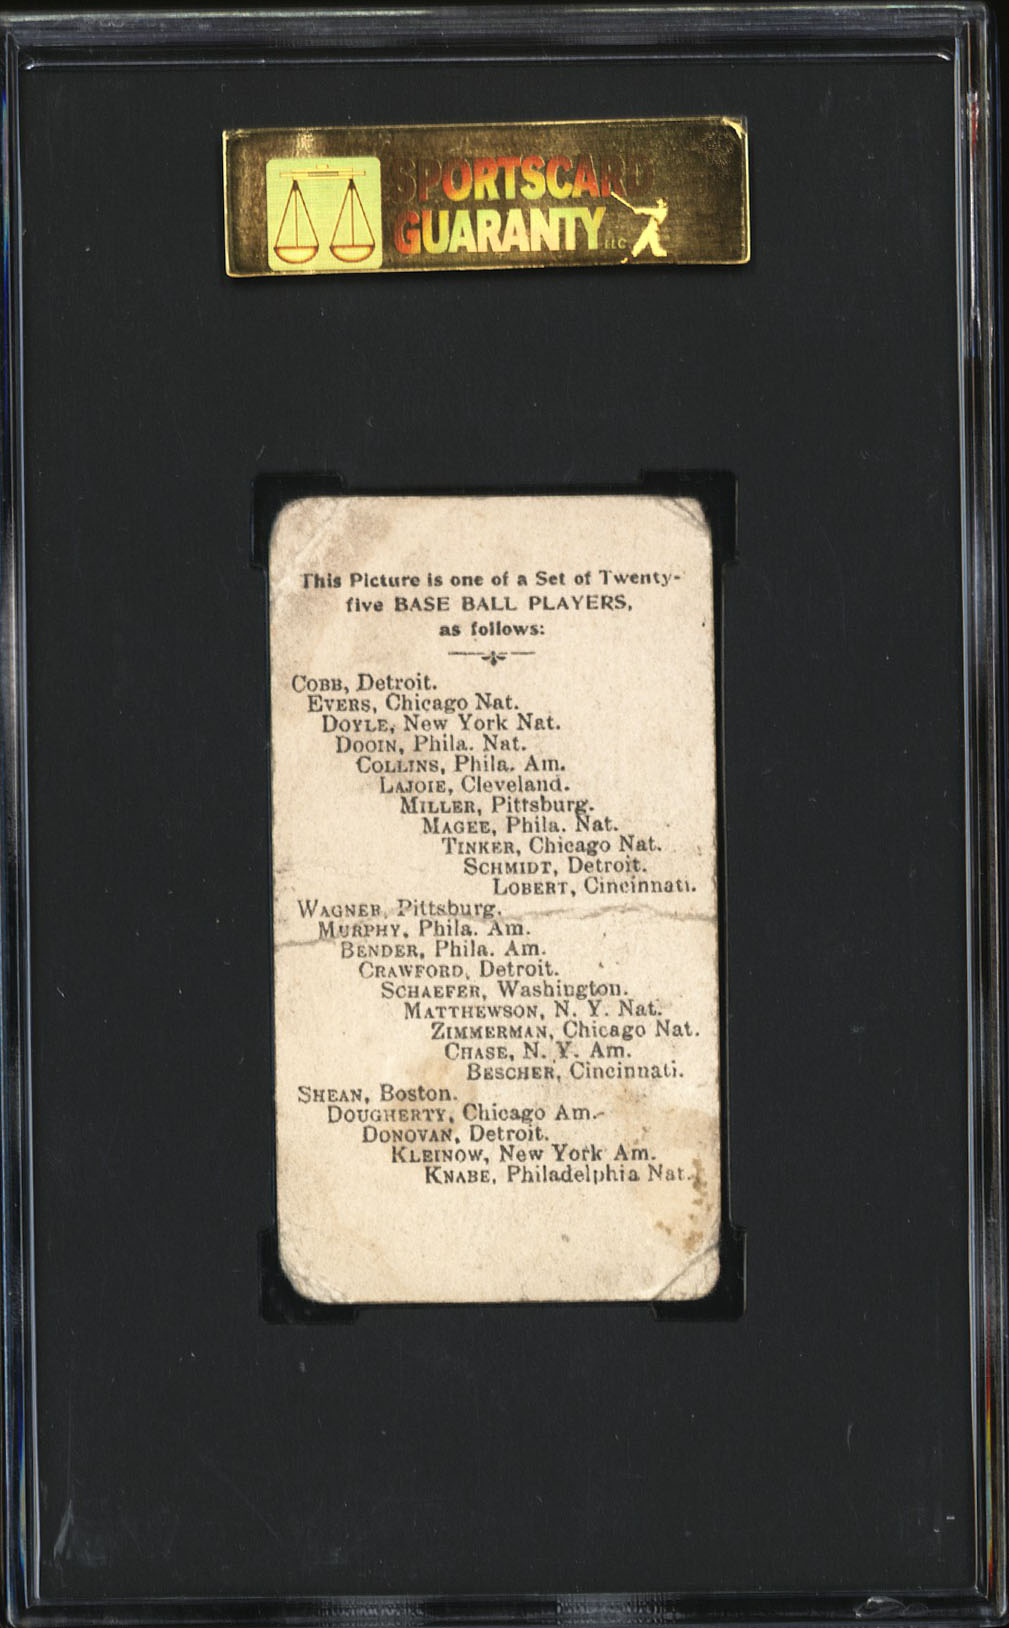 SPORTSCARD
GUARANTY LLC
This Picture is one of a Set of Twenty-
five BASE BALL PLAYERS,
as follows:
COBB, Detroit.
EVERS, Chicago Nat.
DOYLE, New York Nat.
DOOIN, Phila. Nat.
COLLINS, Phila. Am.
LAJOIE, Cleveland.
MILLER, Pittsburg.
MAGEE, Phila. Nat.
TINKER, Chicago Nat.
SCHMIDT, Detroit.
LOBERT, Cincinnati.
WAGNER, Pittsburg.
MURPHY, Phila. Am.
BENDER, Phila. Am.
CRAWFORD, Detroit.
SCHAEFER, Washington.
MATTHEWSON, N. Y. Nat.
ZIMMERMAN, Chicago Nat.
CHASE, N. Y. Am.
BESCHER, Cincinnati.
SHEAN, Boston.
DOUGHERTY, Chicago Am.
DONOVAN, Detroit.
KLEINOW, New York Am.
KNABE, Philadelphia Nat.